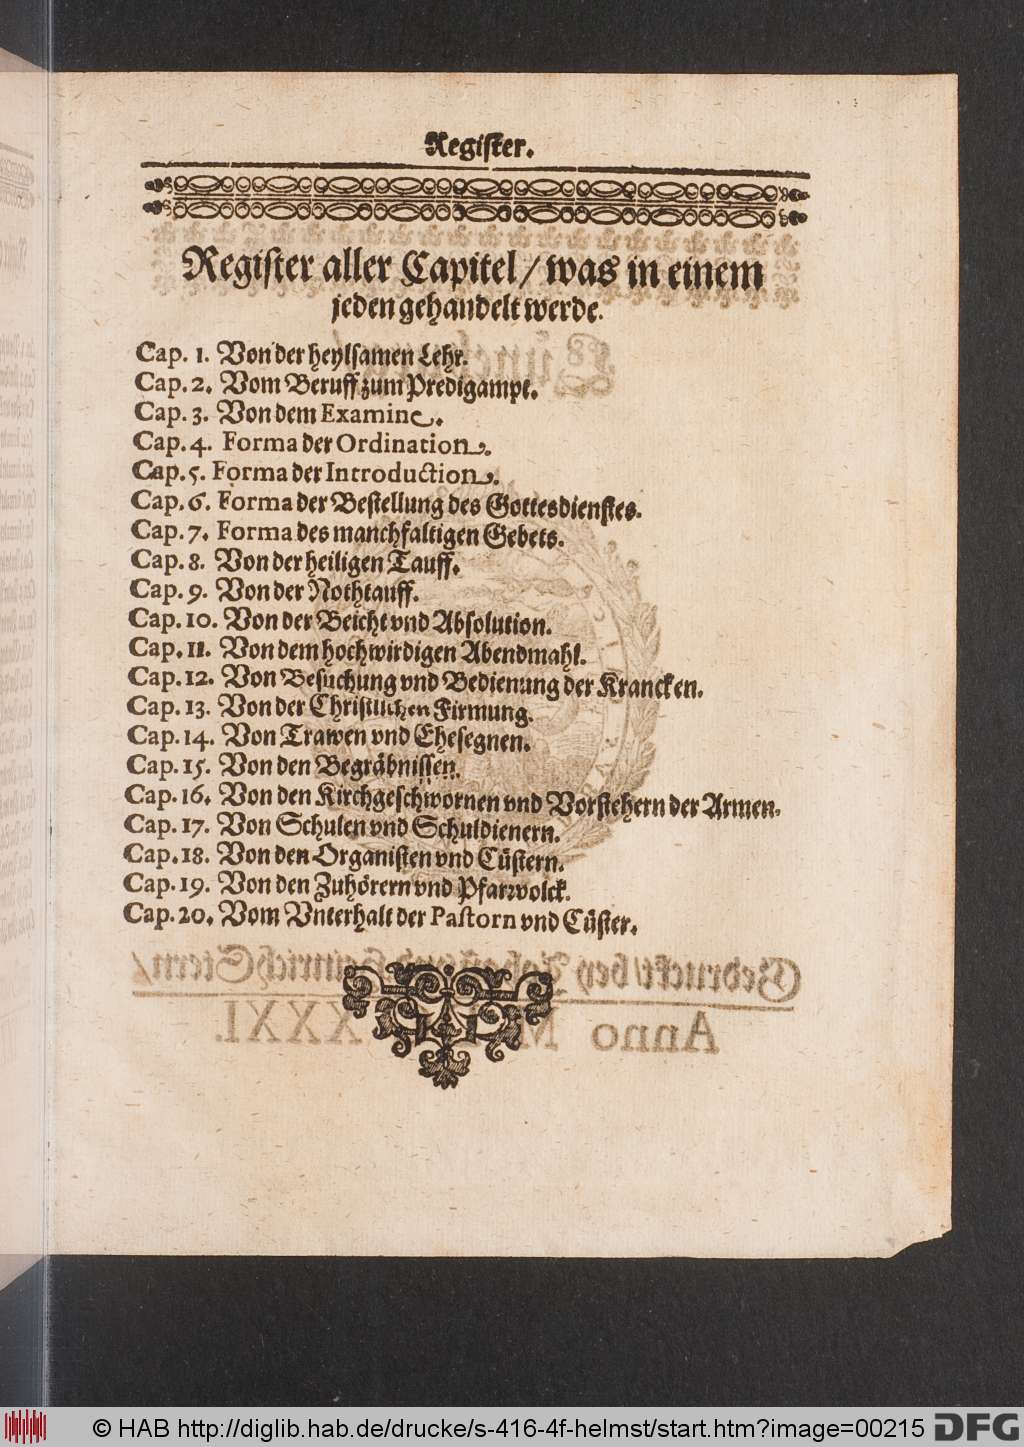 Register.
Register aller Capitel / was in einem
jeden gehandelt werde.
Cap. 1. Von der heylsamen Lehr.
Cap. 2. Vom Beruff zum Predigampt.
Cap. 3. Von dem Examine.
Cap. 4. Forma der Ordination.
Cap. 5. Forma der Introduction.
Cap. 6. Forma der Bestellung des Gottesdienstes.
Cap. 7. Forma des manchfaltigen Gebets.
Cap. 8. Von der heiligen Tauff.
Cap. 9. Von der Nothtauff.
Cap. 10. Von der Beicht vnd Absolution.
Cap. 11. Von dem hochwirdigen Abendmahl.
Cap. 12. Von Besuchung vnd Bedienung der Krancken.
Cap. 13. Von der Christlichen Firmung.
Cap. 14. Von Trawen vnd Ehesegnen.
Cap. 15. Von den Begräbnissen.
Cap. 16. Von den Kirchgeschwornen vnd Vorstehern der Armen.
Cap. 17. Von Schulen vnd Schuldienern.
Cap. 18. Von den Organisten vnd Cüstern.
Cap. 19. Von den Zuhörern vnd Pfarrvolck.
Cap. 20. Vom Vnterhalt der Pastorn vnd Cüster.
© HAB http://diglib.hab.de/drucke/s-416-4f-helmst/start.htm?image=00215
DFG